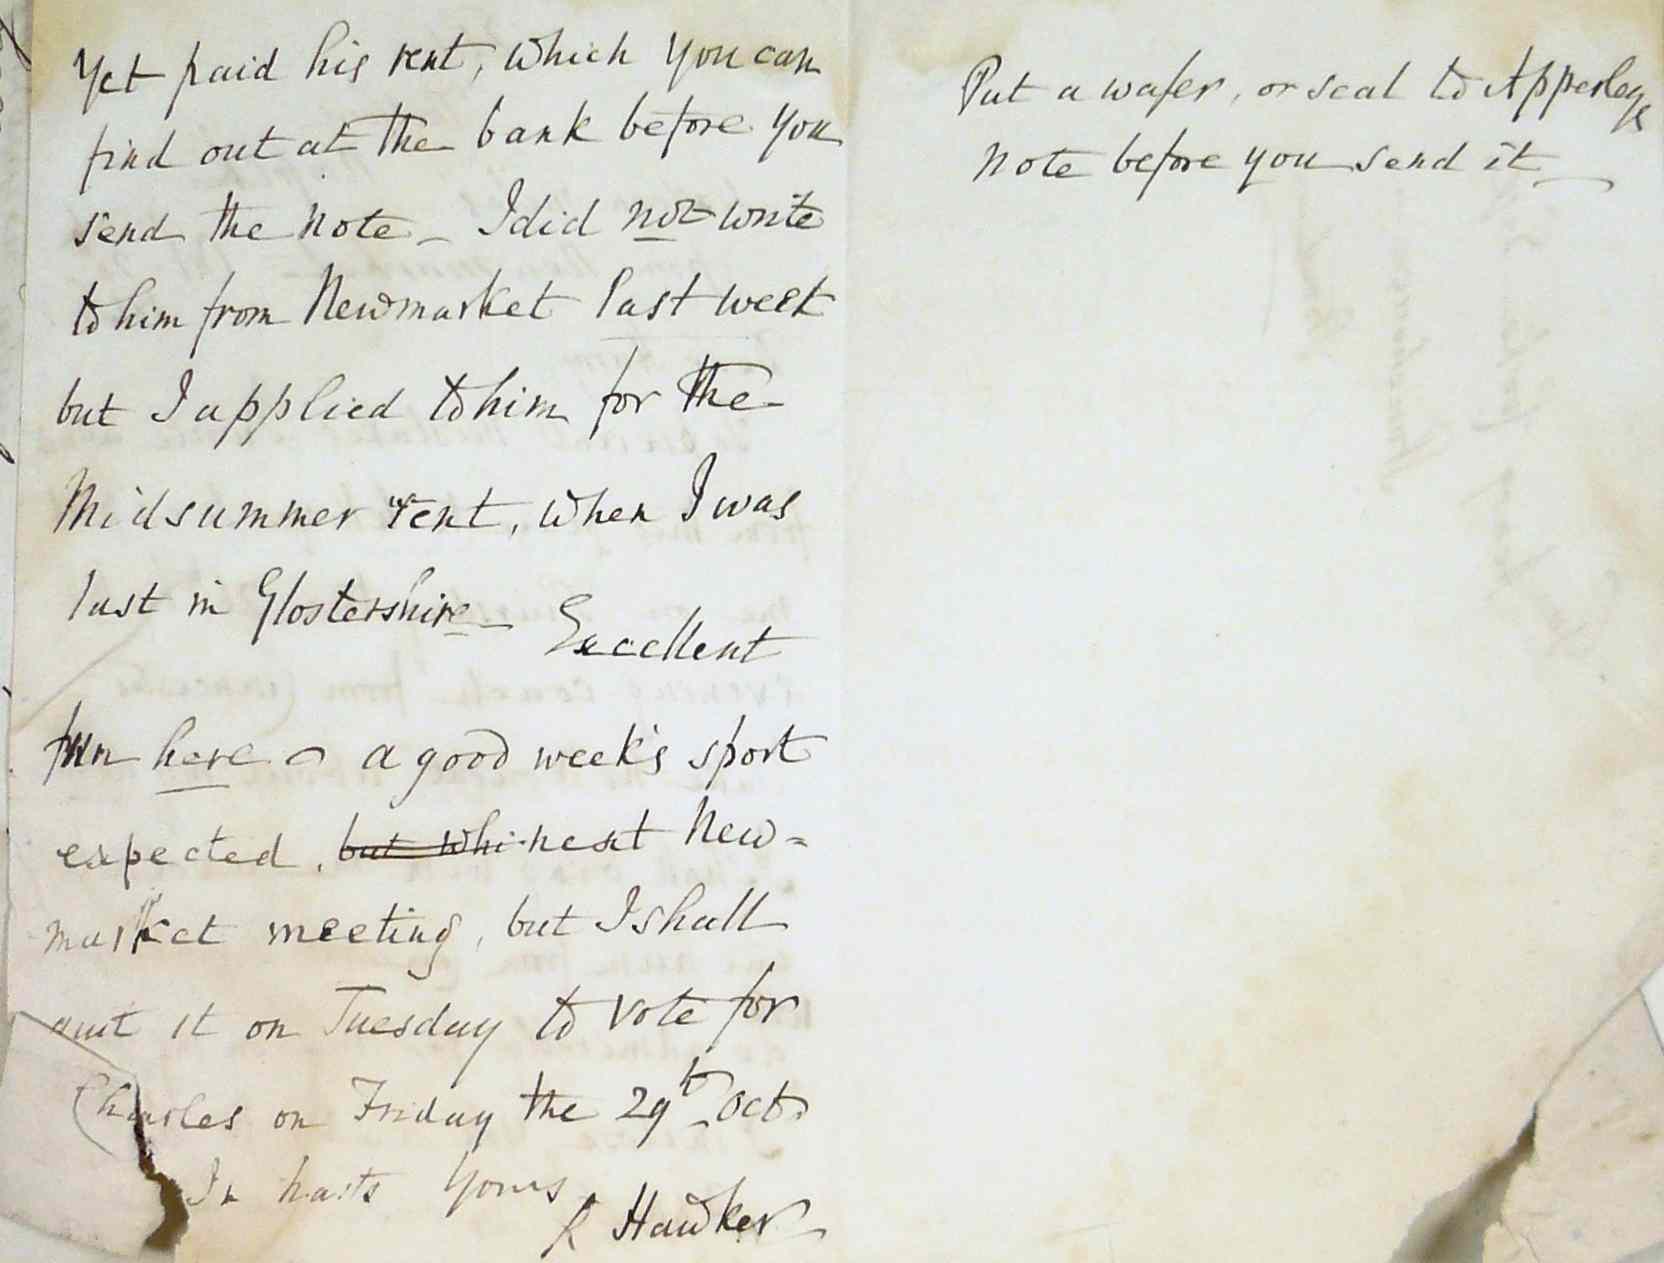 Yet paid his rent, which you can
find out at the bank before you
send the note _ I did not write
to him from Newmarket last week
but I applied to him for the
Midsummer rent, when I was
last in Glostershire _ Excellent
fun here _ a good week's sport
expected, but whi next New=
market meeting, but I shall
quit it on Tuesday to vote for
Charles on Friday the 29th Oct.
In haste Yours
R Hawker
Put a wafer, or seal to Apperleys
note before you send it _